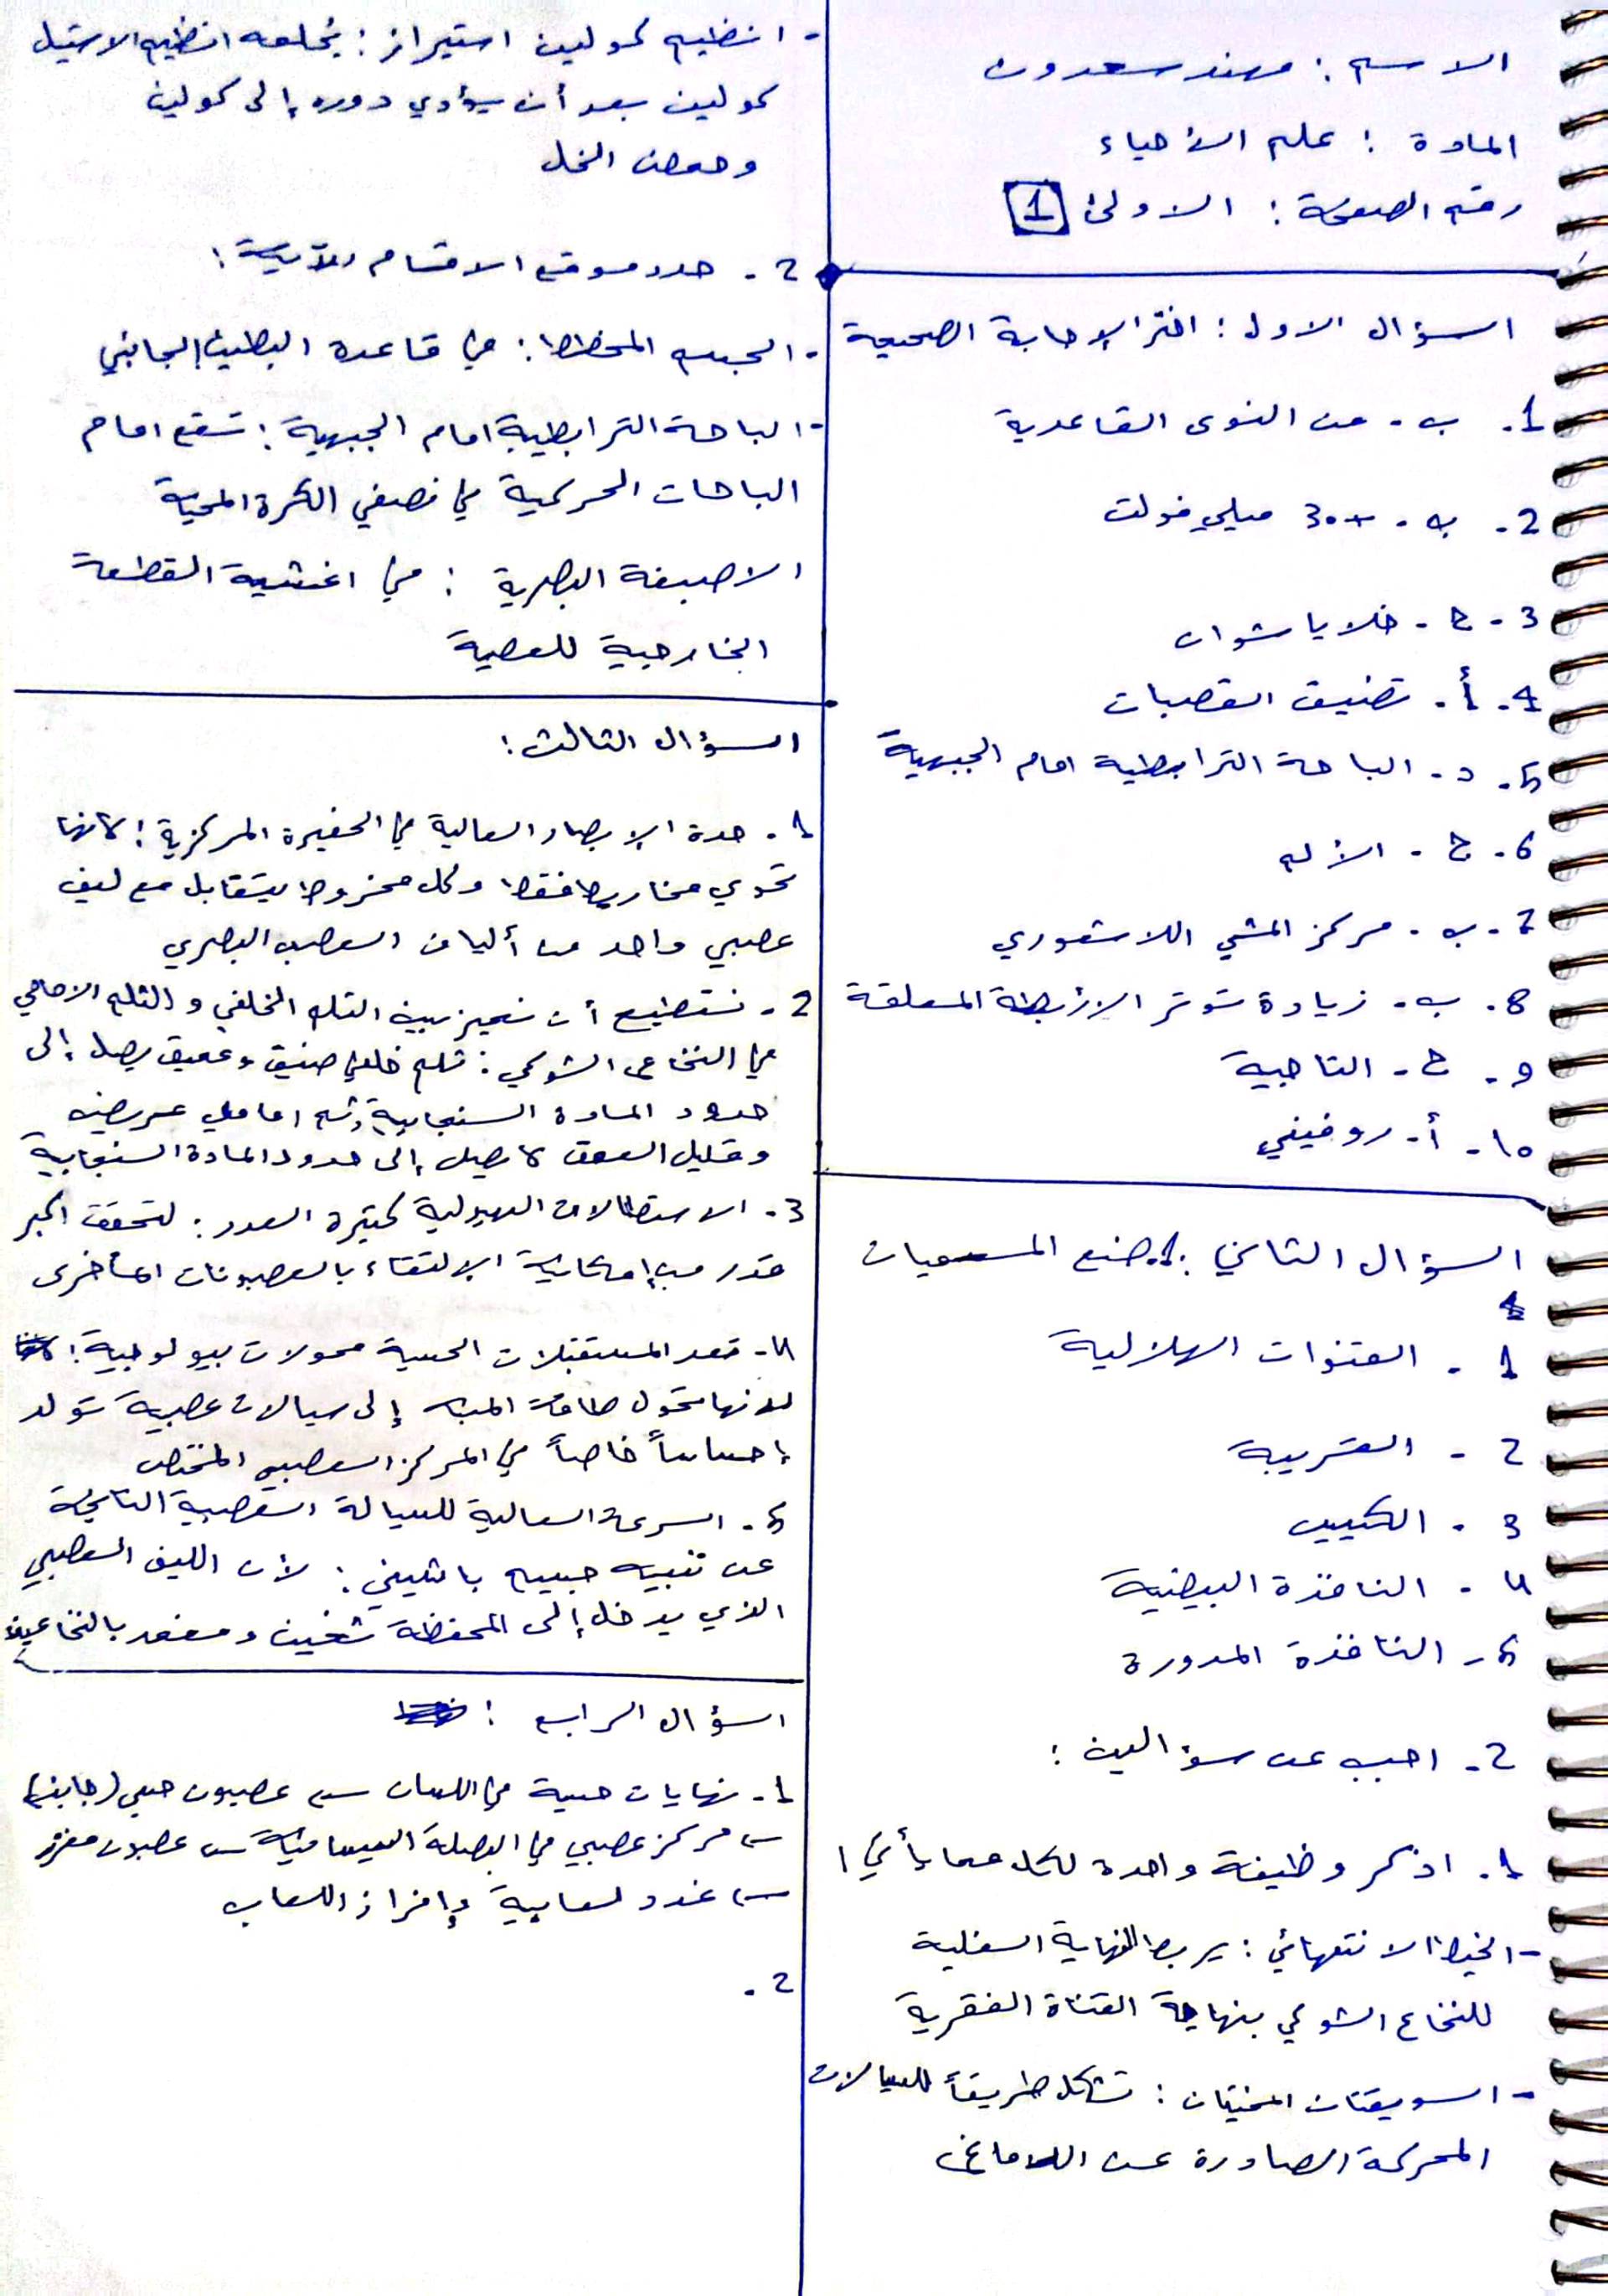 الاسم : مهند سعدون
المادة : علم الأحياء
رقم الصفحة : الاولى 1
السؤال الاول : اختر الإجابة الصحيحة
1. ب - من النوى القاعدية
2. ب - +30 ميلي فولت
3 - ج - خلايا شوان
4. أ. تضيق القصبات
5. د. الباحة الترابطية امام الجبهية
6. ج - الألم
7. ب - مركز المشي اللاشعوري
8. ب - زيادة توتر الأربطة المعلقة
9 - ج - التاجية
10 - أ - روفيني
السؤال الثاني : 1. ضع المسميات
1 - القنوات الهلالية
2 - القريبة
3 - الكييس
4 - النافذة البيضية
5 - النافذة المدورة
2. اجب عن سؤالين :
1. اذكر وظيفة واحدة لكل مما يأتي :
- الخيط الانتهائي : يربط النهاية السفلية
للنخاع الشوكي بنهاية القناة الفقرية
- السويقتان المخيتان : تشكل طريقاً للسيالات
المحركة الصادرة عن الدماغ
- انظيم كولين استيراز : يحلمه انظيم الاستيل
كولين بعد أن يؤدي دوره إلى كولين
وحمض الخل
2 - حدد موقع الاقسام الآتية :
- الجسم المخطط : في قاعدة البطين الجانبي
- الباحة الترابطية امام الجبهية : تقع امام
الباحات الحركية في نصفي الكرة المخية
الاصبغة البصرية : في اغشية القطعة
الخارجية للعصية
السؤال الثالث :
1. حدة الإبصار العالية في الحفيرة المركزية : لانها
تحوي مخاريط فقط وكل مخروط يتقابل مع ليف
عصبي واحد من ألياف العصب البصري
2 - نستطيع أن نميز بين الثلم الخلفي والثلم الامامي
في النخاع الشوكي : ثلم خلفي ضيق وعميق يصل إلى
حدود المادة السنجابية، ثلم امامي عريض
وقليل العمق لا يصل إلى حدود المادة السنجابية
3. الاستطالات الهيولية كثيرة العدد : لتحقق اكبر
قدر من إمكانية الالتقاء بالعصبونات الأخرى
4 - تعد المستقبلات الحسية محولات بيولوجية :
لانها تحول طاقة المنبه إلى سيالات عصبية تولد
إحساساً خاصاً في المركز العصبي المختص
5 - السرعة العالية للسيالة العصبية الناتجة
عن تنبيه جسيم باشيني : لأن الليف العصبي
الذي يدخل إلى المحفظة ثخين ومغمد بالنخاعين
السؤال الرابع :
1 - نهايات حسية في اللسان ← عصبون حسي (جابذ)
← مركز عصبي في البصلة السيسائية ← عصبون مفرز
← غدد لعابية وإفراز اللعاب
2 .